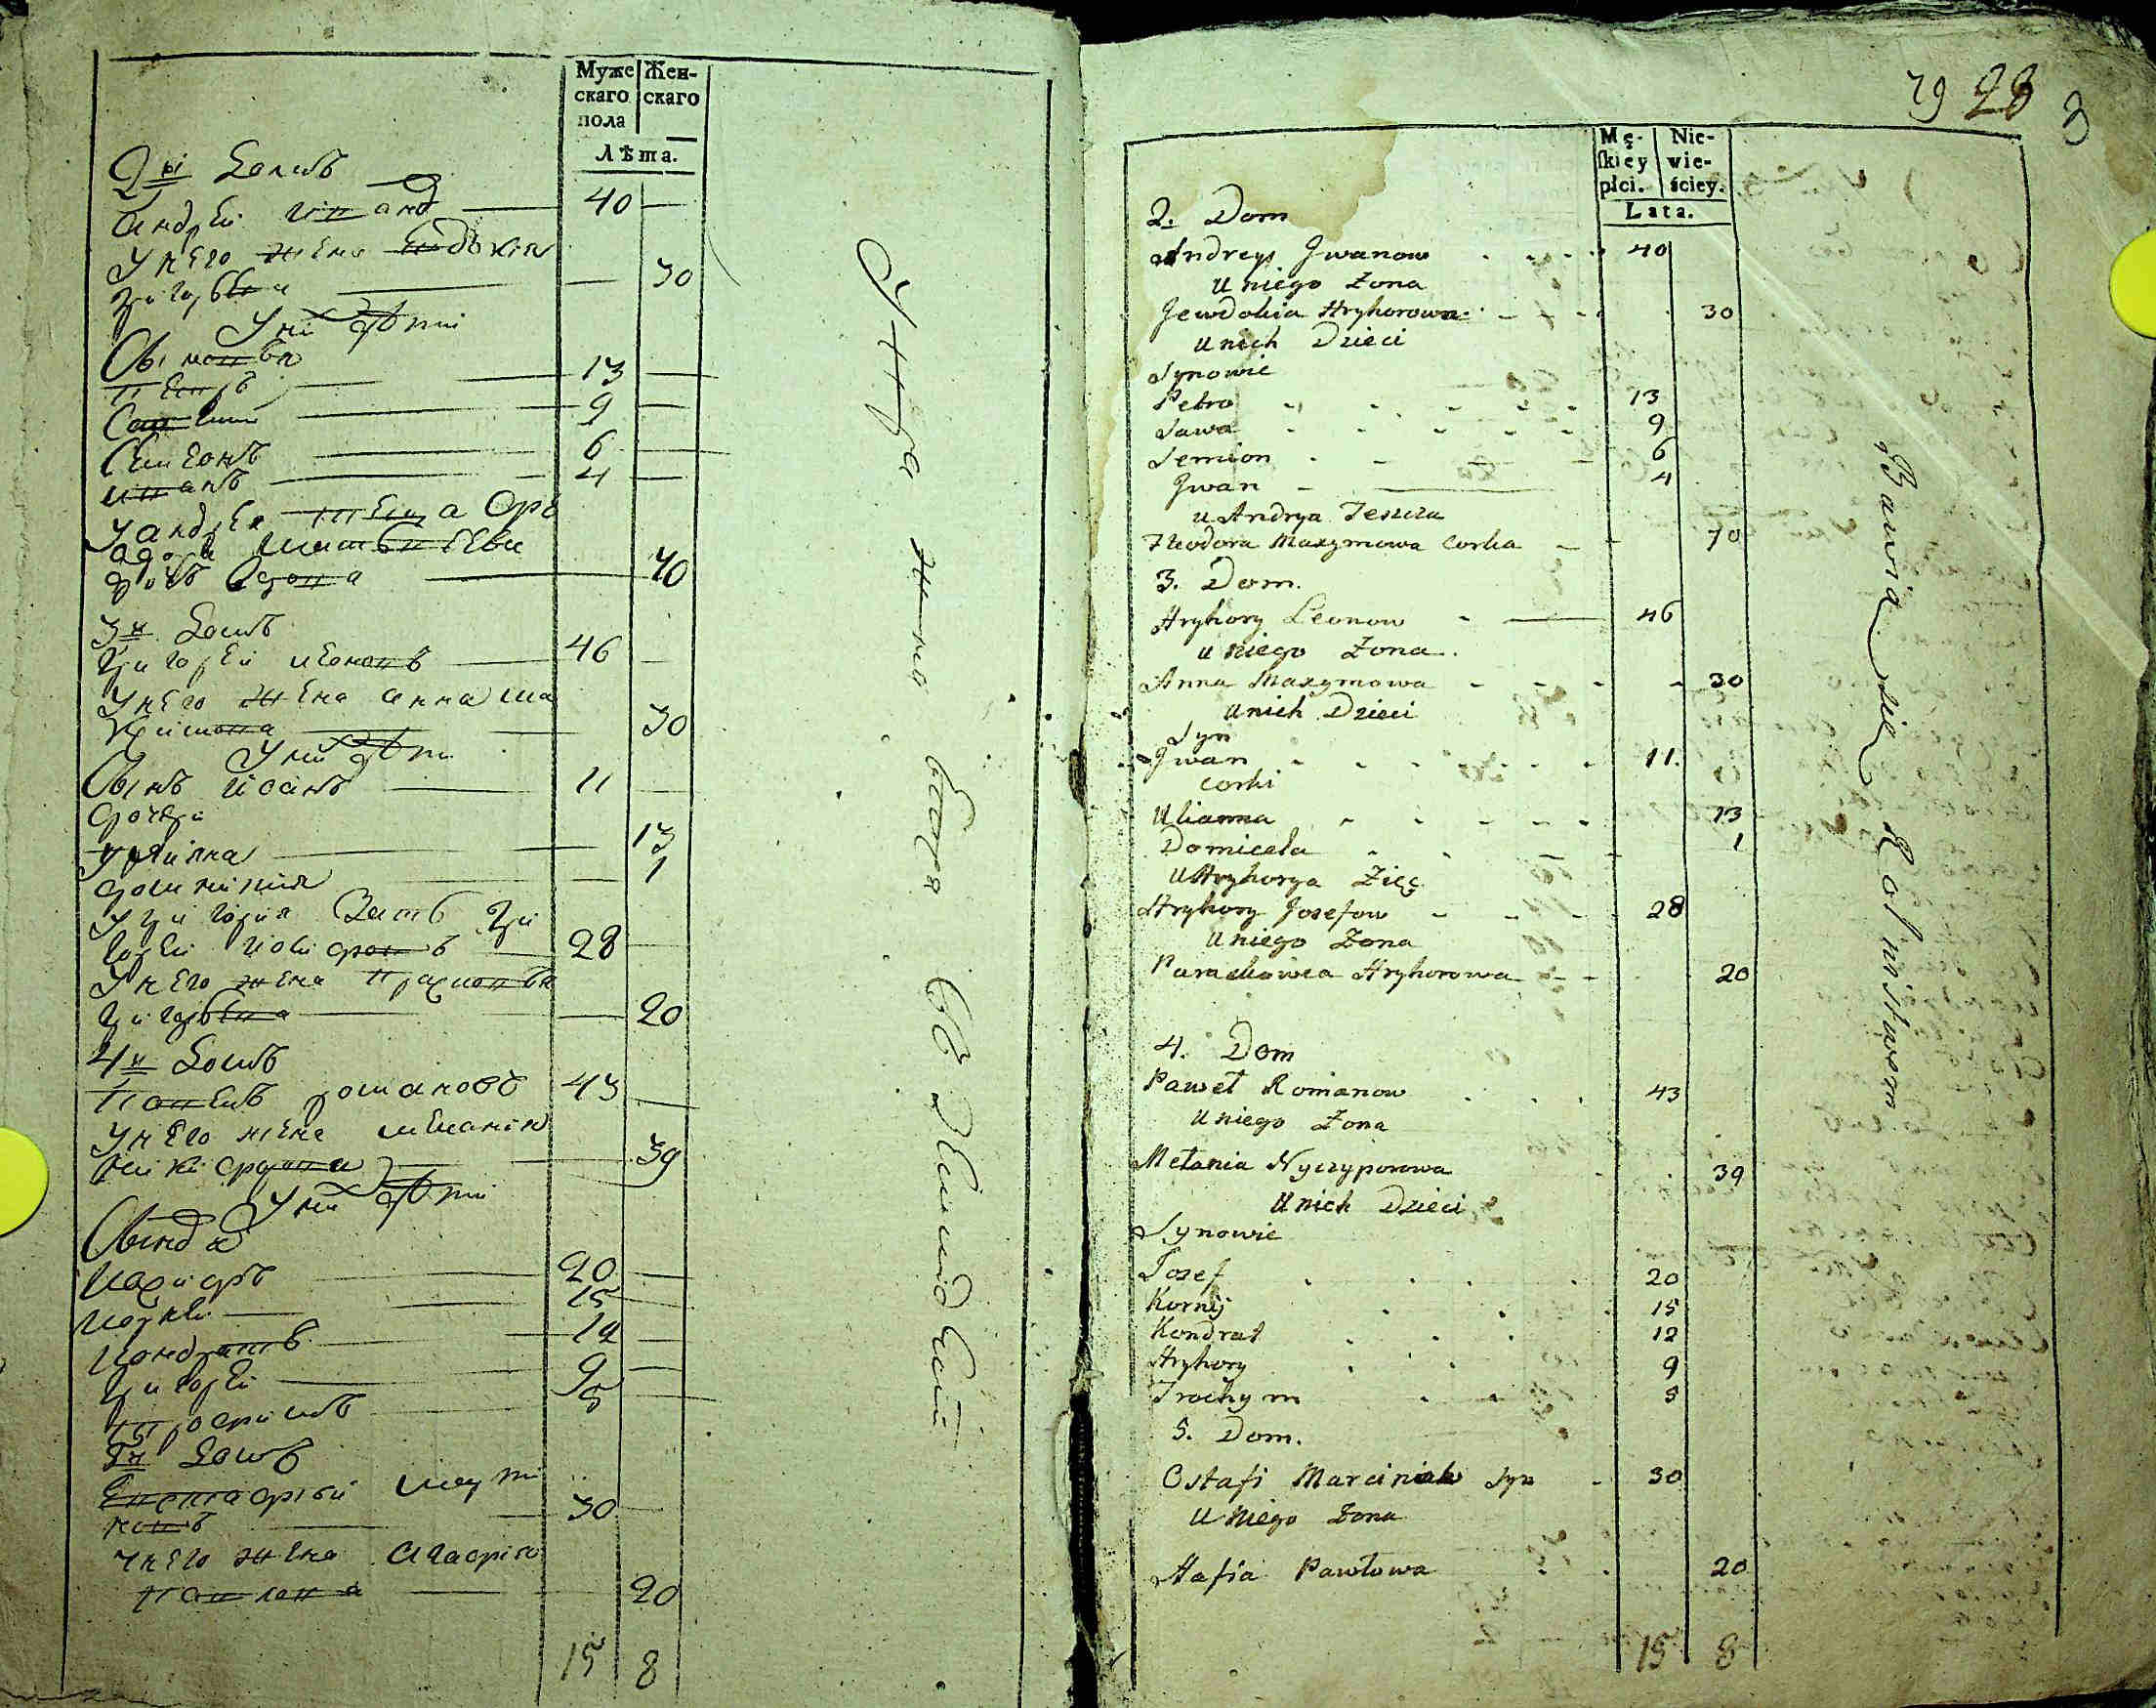 Муже
скаго
пола
Жен-
скаго
Лѣта.
2й Домъ
Андрей Иванов 40
У него жена Евдокія
Григорьева 30
У ни дѣти
Сыновья
Петръ 13
Савелий 9
Симеонъ 6
Иванъ 4
У Андрея теща Фео
дора
дочь 70
3й Домъ
Григорей Леоновъ 46
У него жена Анна Ма
ксимова 30
У ни дѣти
Сынъ Иванъ 11
Дочери
Улиянна 13
Доминикия 1
У Григория Зять Гри
горей Иосифовъ 28
У него жена Прасковья
Григорьевна 20
4й Домъ
Павелъ Романовъ 43
У него жена Меланія
Никифорова 39
У ни дѣти
Сыновья
Иосифъ 20
Корней 15
Кондратъ 12
Григорей 9
Трофимъ 5
5й Домъ
Евстафий Марти
новъ 30
У него жена Агафія
Павлова 20
15 8
29 28 3
Mę-
skiey
płci.
Nie-
wie-
ściey.
Lata.
2. Dom
Andreys Jwanow 40
u niego Żona
Jewdokia Hryhorowa 30
u nich Dzieci
Synowie
Petro 13
Sawa 9
Semion 6
Jwan 4
u Andrya Teszcza
Theodora Maxymowa Corka 70
3. Dom.
Hryhory Leonow 46
u niego Żona.
Anna Maxymowa 30
u nich Dzieci
Syn
Jwan 11.
Corki
Ulianna 13
Domicela 1
U Hryhorya Zięć
Hryhory Josefow 28
U niego Żona
Paraskowia Hryhorowa 20
4. Dom
Paweł Romanow 43
U niego Żona
Mełania Nyczyporowa 39
U nich Dzieci
Synowie
Josef 20
Kornij 15
Kondrat 12
Hryhory 9
Trochym 5
5. Dom.
Ostafi Marciniak Syn 30
U Niego Żona
Hafia Pawłowa 20
15 8
Bawią się Rolnistwem